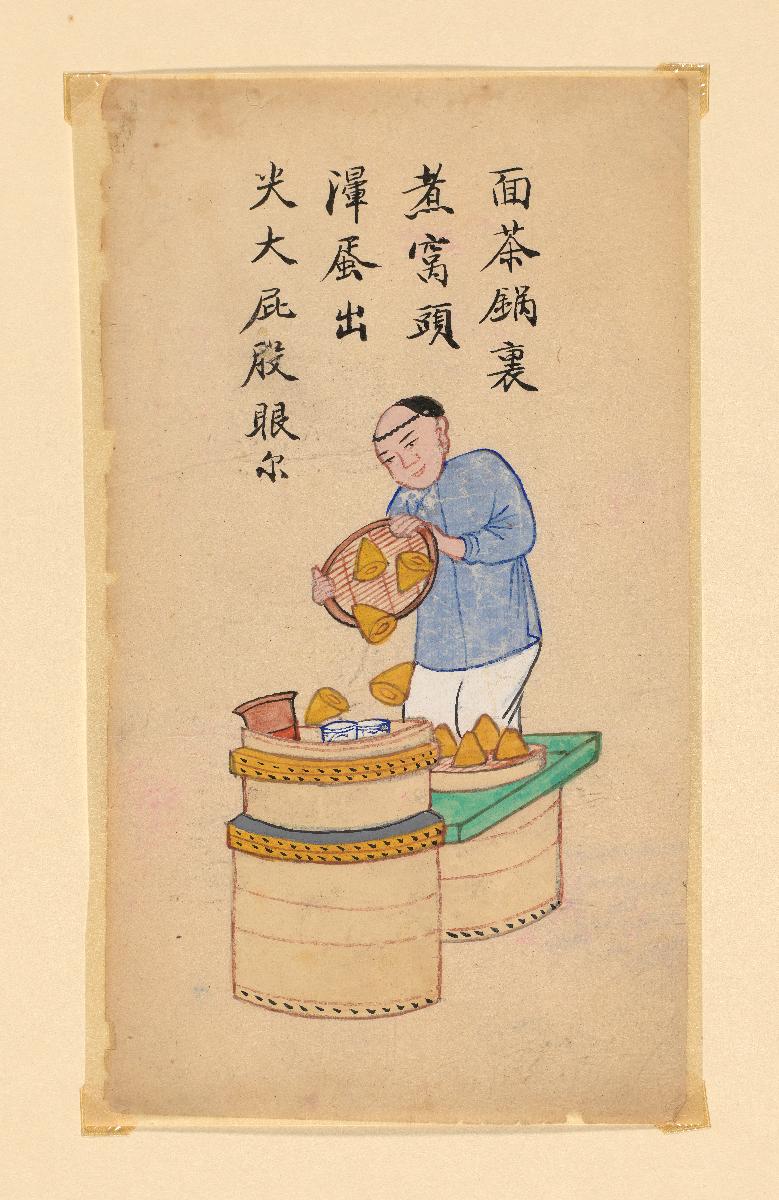 面茶鍋裏
煮窩頭
渾蛋出
尖大屁股眼尔